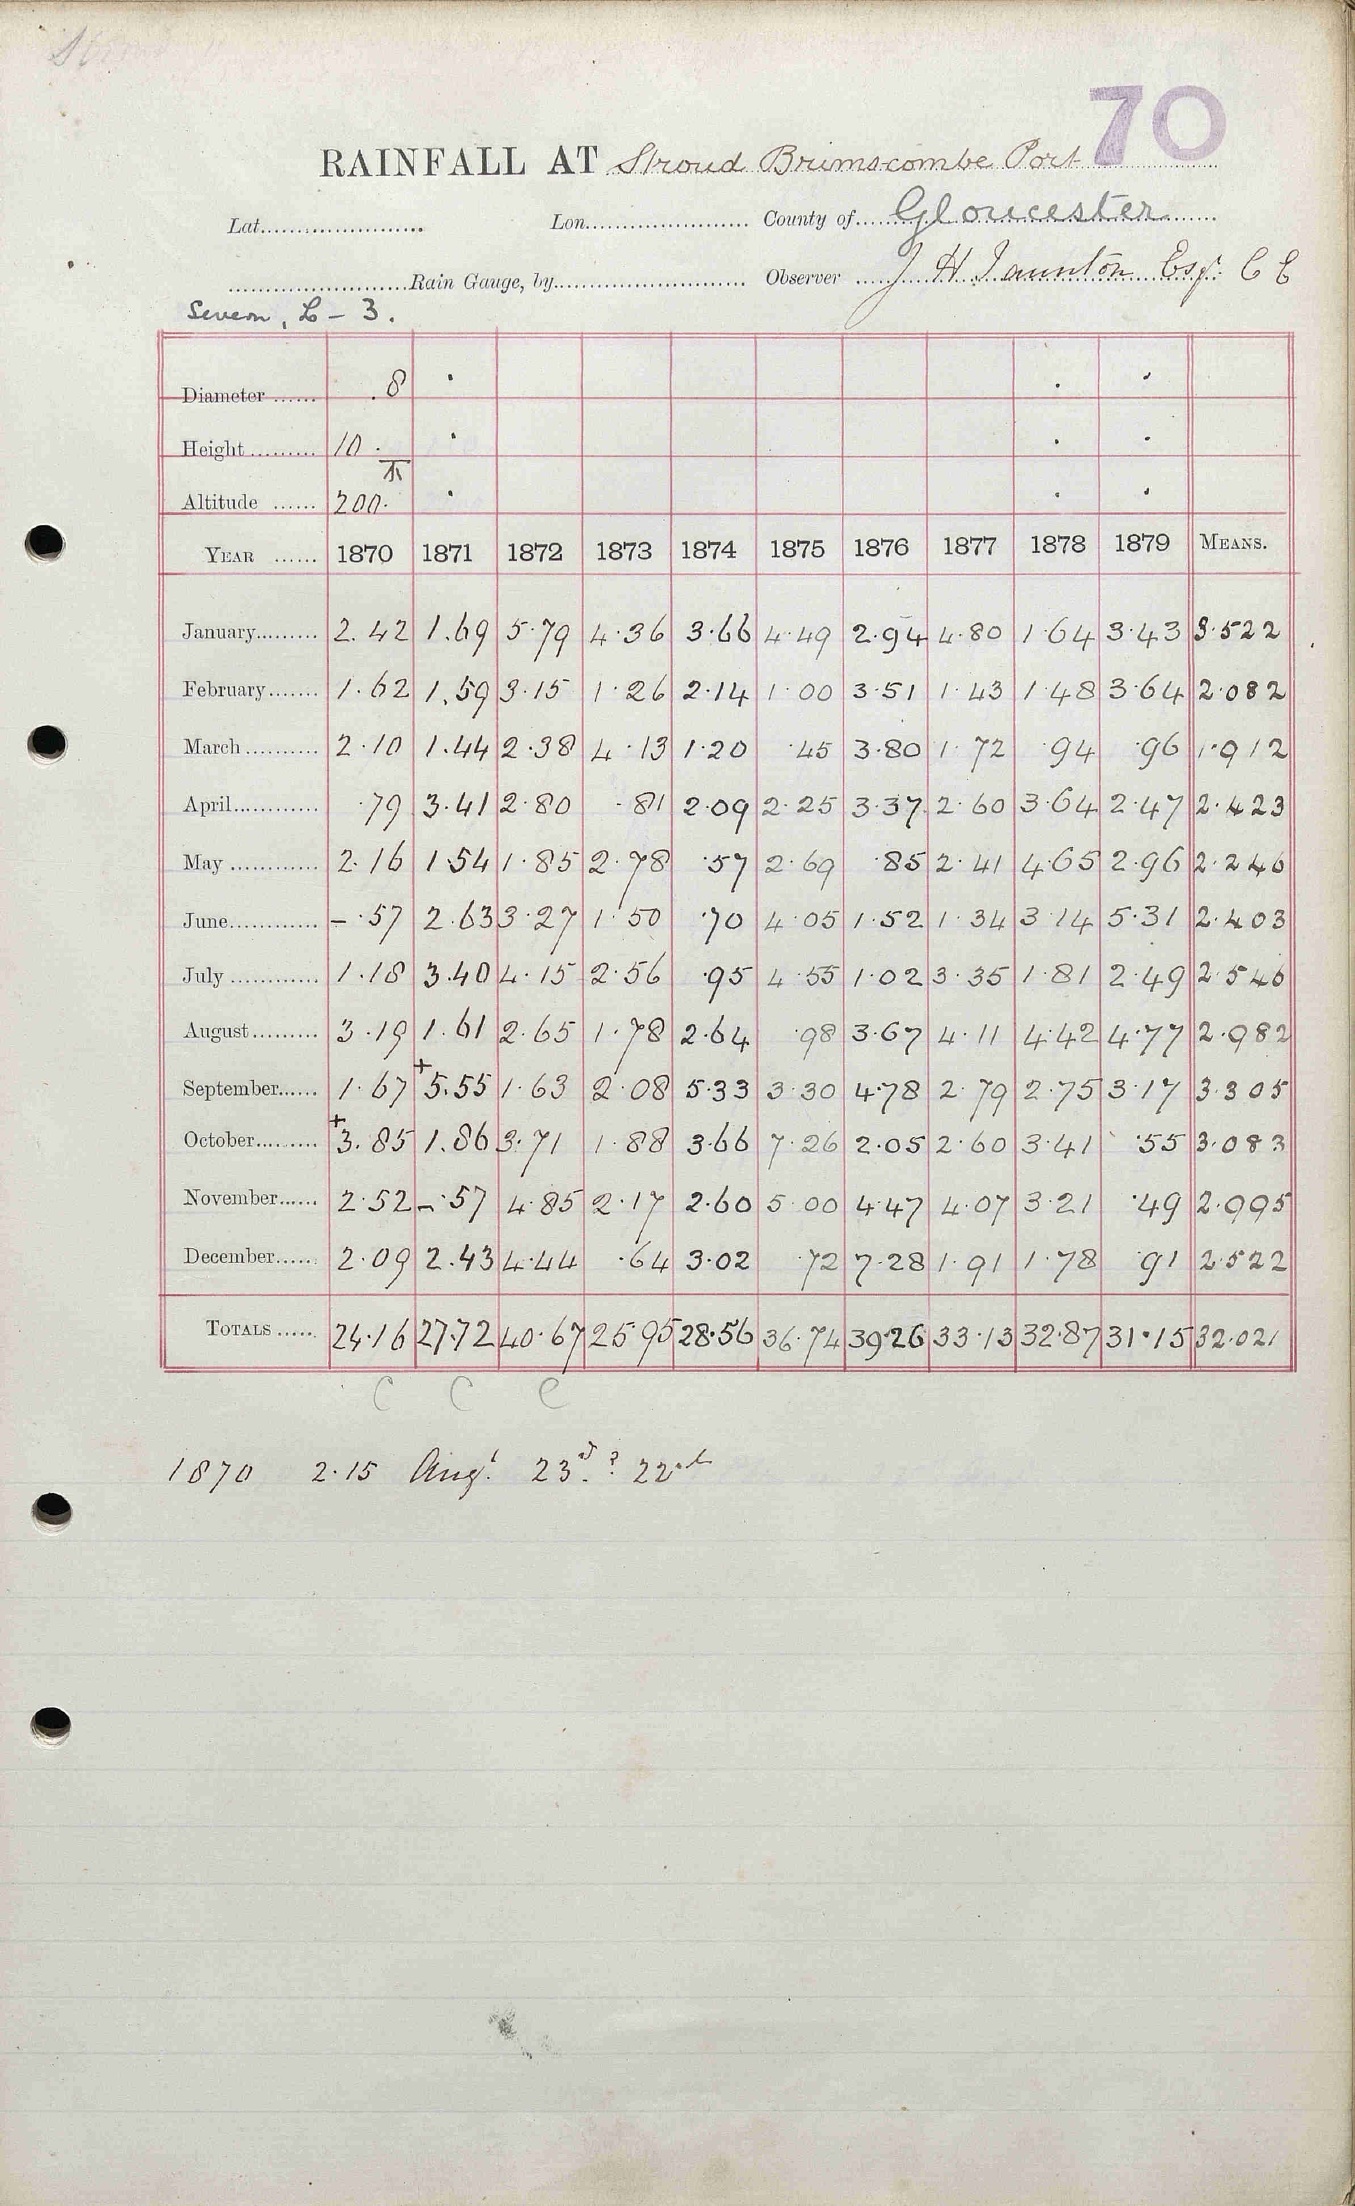 70
RAINFALL AT Stroud Brimscombe Port
Lat. Lon. County of Gloucester
Rain Gauge, by Observer J H Taunton Esqr. C E
Severn, L - 3.
Diameter 8
Height 10
Altitude 200
YEAR 1870 1871 1872 1873 1874 1875 1876 1877 1878 1879 MEANS.
January 2.42 1.69 5.79 4.36 3.66 4.49 2.94 4.80 1.64 3.43 3.522
February 1.62 1.59 3.15 1.26 2.14 1.00 3.51 1.43 1.48 3.64 2.082
March 2.10 1.44 2.38 4.13 1.20 .45 3.80 1.72 .94 .96 1.912
April .79 3.41 2.80 .81 2.09 2.25 3.37 2.60 3.64 2.47 2.423
May 2.16 1.54 1.85 2.78 .57 2.69 .85 2.41 4.65 2.96 2.246
June – .57 2.63 3.27 1.50 .70 4.05 1.52 1.34 3.14 5.31 2.403
July 1.18 3.40 4.15 2.56 .95 4.55 1.02 3.35 1.81 2.49 2.546
August 3.19 1.61 2.65 1.78 2.64 .98 3.67 4.11 4.42 4.77 2.982
September 1.67 +5.55 1.63 2.08 5.33 3.30 4.78 2.79 2.75 3.17 3.305
October +3.85 1.86 3.71 1.88 3.66 7.26 2.05 2.60 3.41 .55 3.083
November 2.52 – .57 4.85 2.17 2.60 5.00 4.47 4.07 3.21 .49 2.995
December 2.09 2.43 4.44 .64 3.02 .72 7.28 1.91 1.78 .91 2.522
TOTALS 24.16 27.72 40.67 25.95 28.56 36.74 39.26 33.13 32.87 31.15 32.021
C C C
1870 2.15 Augt. 23rd.? 22nd